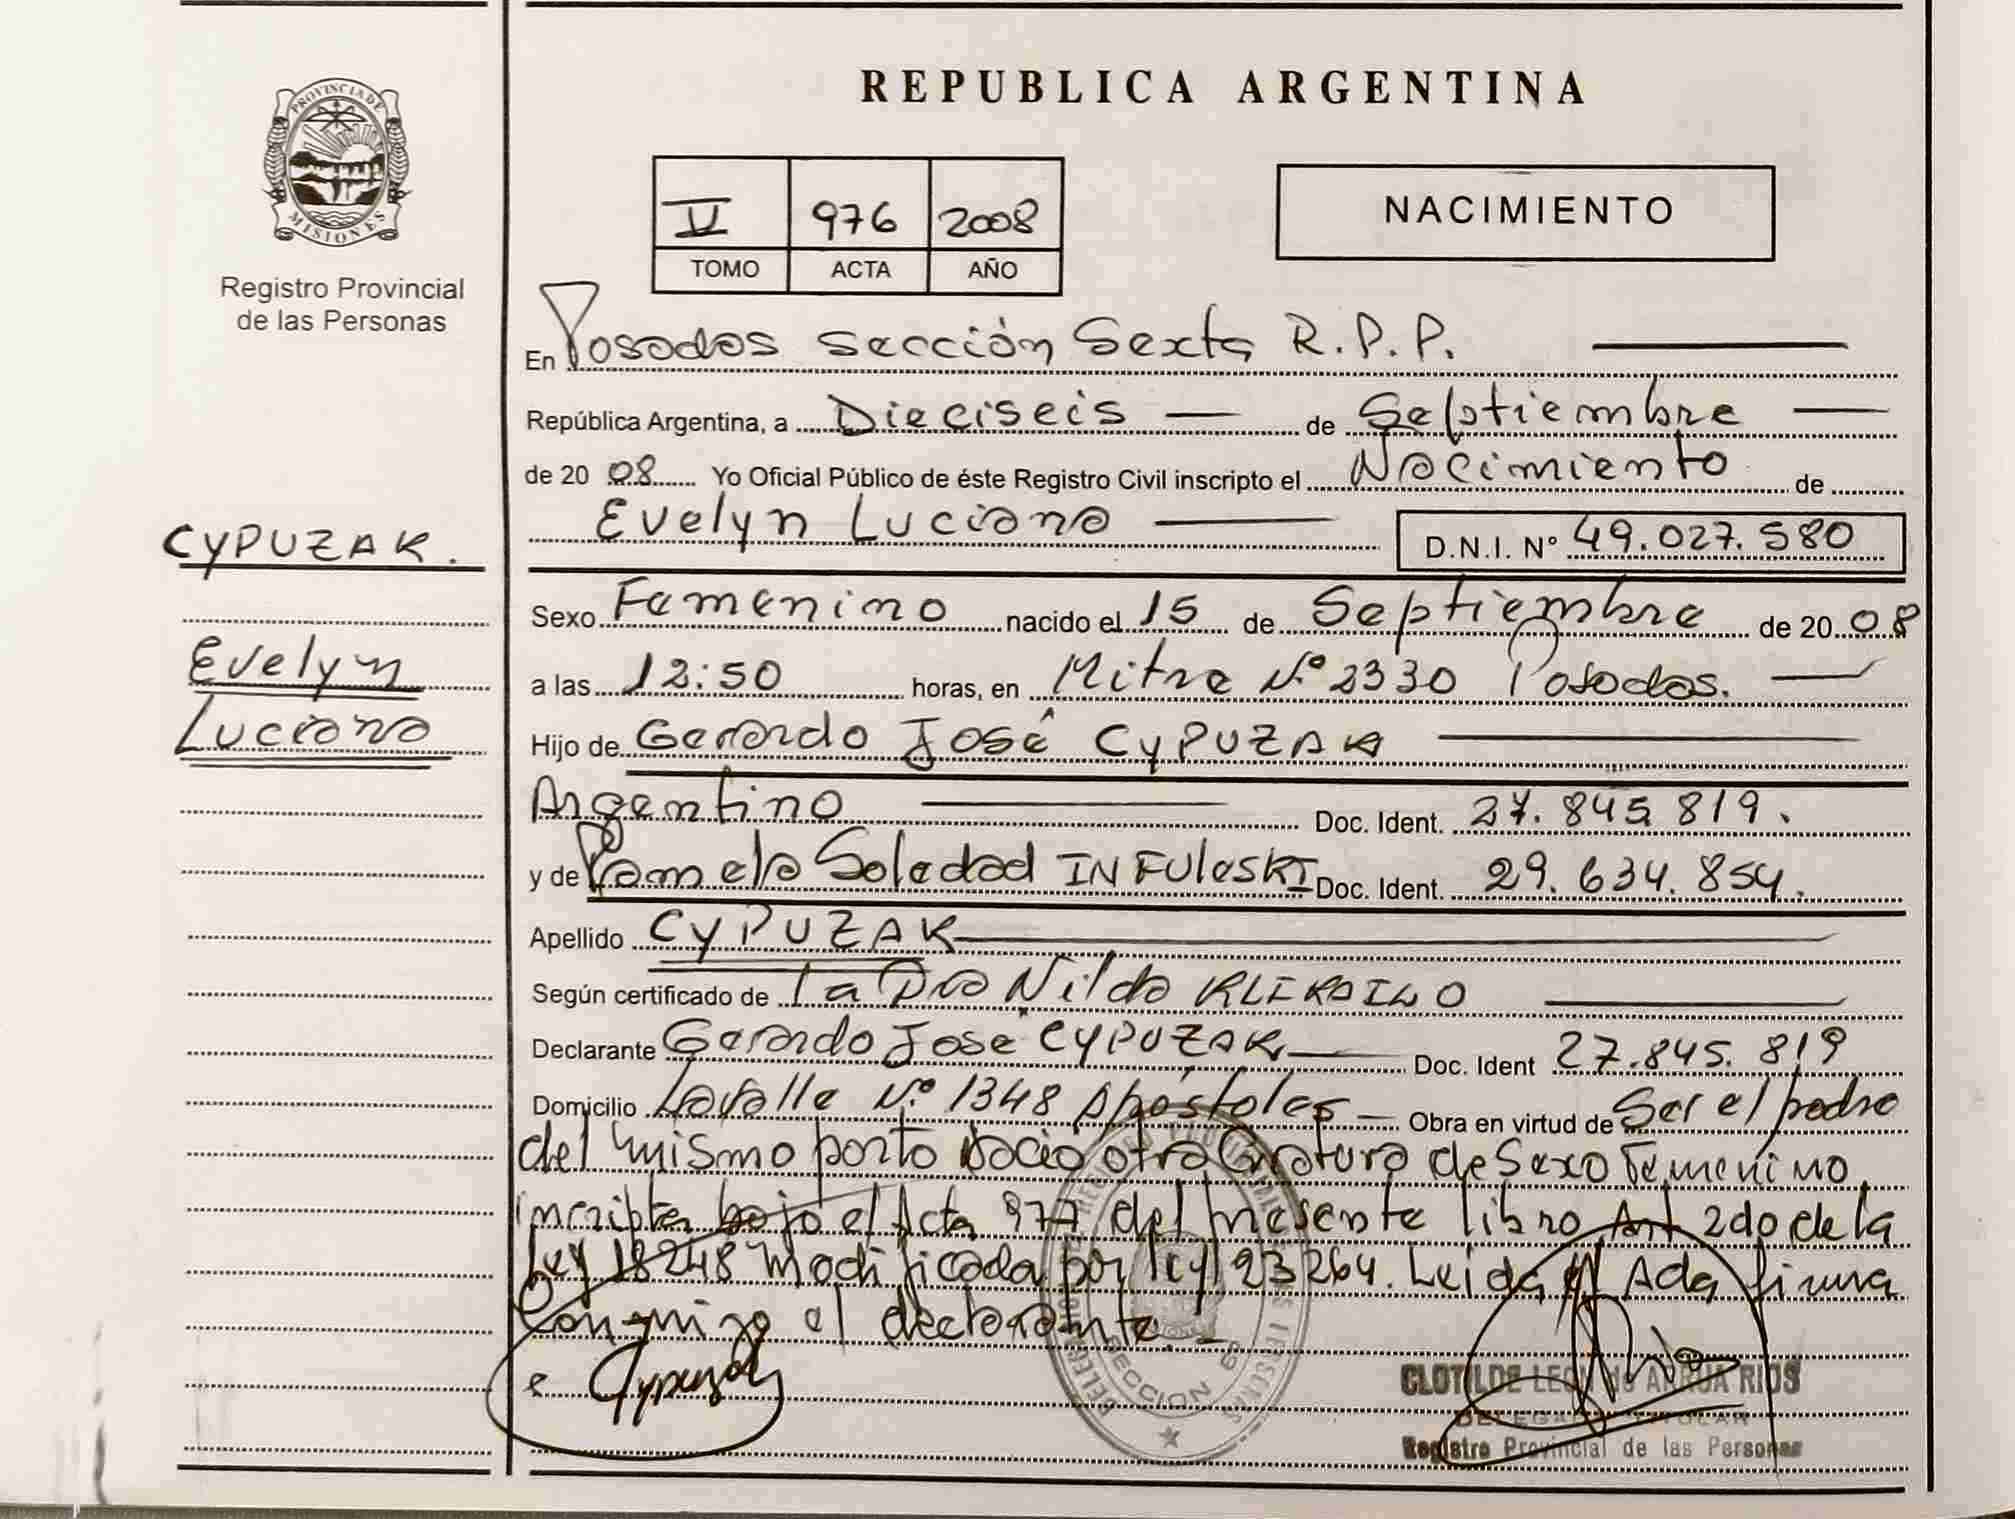 PROVINCIA DE
MISIONES
Registro Provincial
de las Personas
CYPUZAK.
Evelyn
Luciana
REPUBLICA ARGENTINA
V 976 2008
TOMO ACTA AÑO
NACIMIENTO
En Posadas Sección Sexta R.P.P.
República Argentina, a Dieciseis de Septiembre
de 2008 Yo Oficial Público de éste Registro Civil inscripto el Nacimiento de
Evelyn Luciana D.N.I. Nº 49.027.580
Sexo Femenino nacido el 15 de Septiembre de 2008
a las 12:50 horas, en Mitre Nº 2330 Posadas.
Hijo de Gerardo José CYPUZAK
Argentino Doc. Ident. 27.845.819.
y de Pamela Soledad INFULESKI Doc. Ident. 29.634.854.
Apellido CYPUZAK
Según certificado de la Dra Nilda
Declarante Gerardo José CYPUZAK Doc. Ident 27.845.819
Domicilio Lavalle Nº 1348 Apóstoles Obra en virtud de Ser el padre
del mismo parto nació otra Criatura de Sexo Femenino
inscripta bajo el Acta 977 del presente libro Art 2do de la
Ley 18248 modificada por ley 23264. Leida el Acta firma
Conmigo el declarante.
Cypuzak
SECCION 6ª
CLOTILDE LEON de ARRUA RIOS
DELEGADA TITULAR
Registro Provincial de las Personas